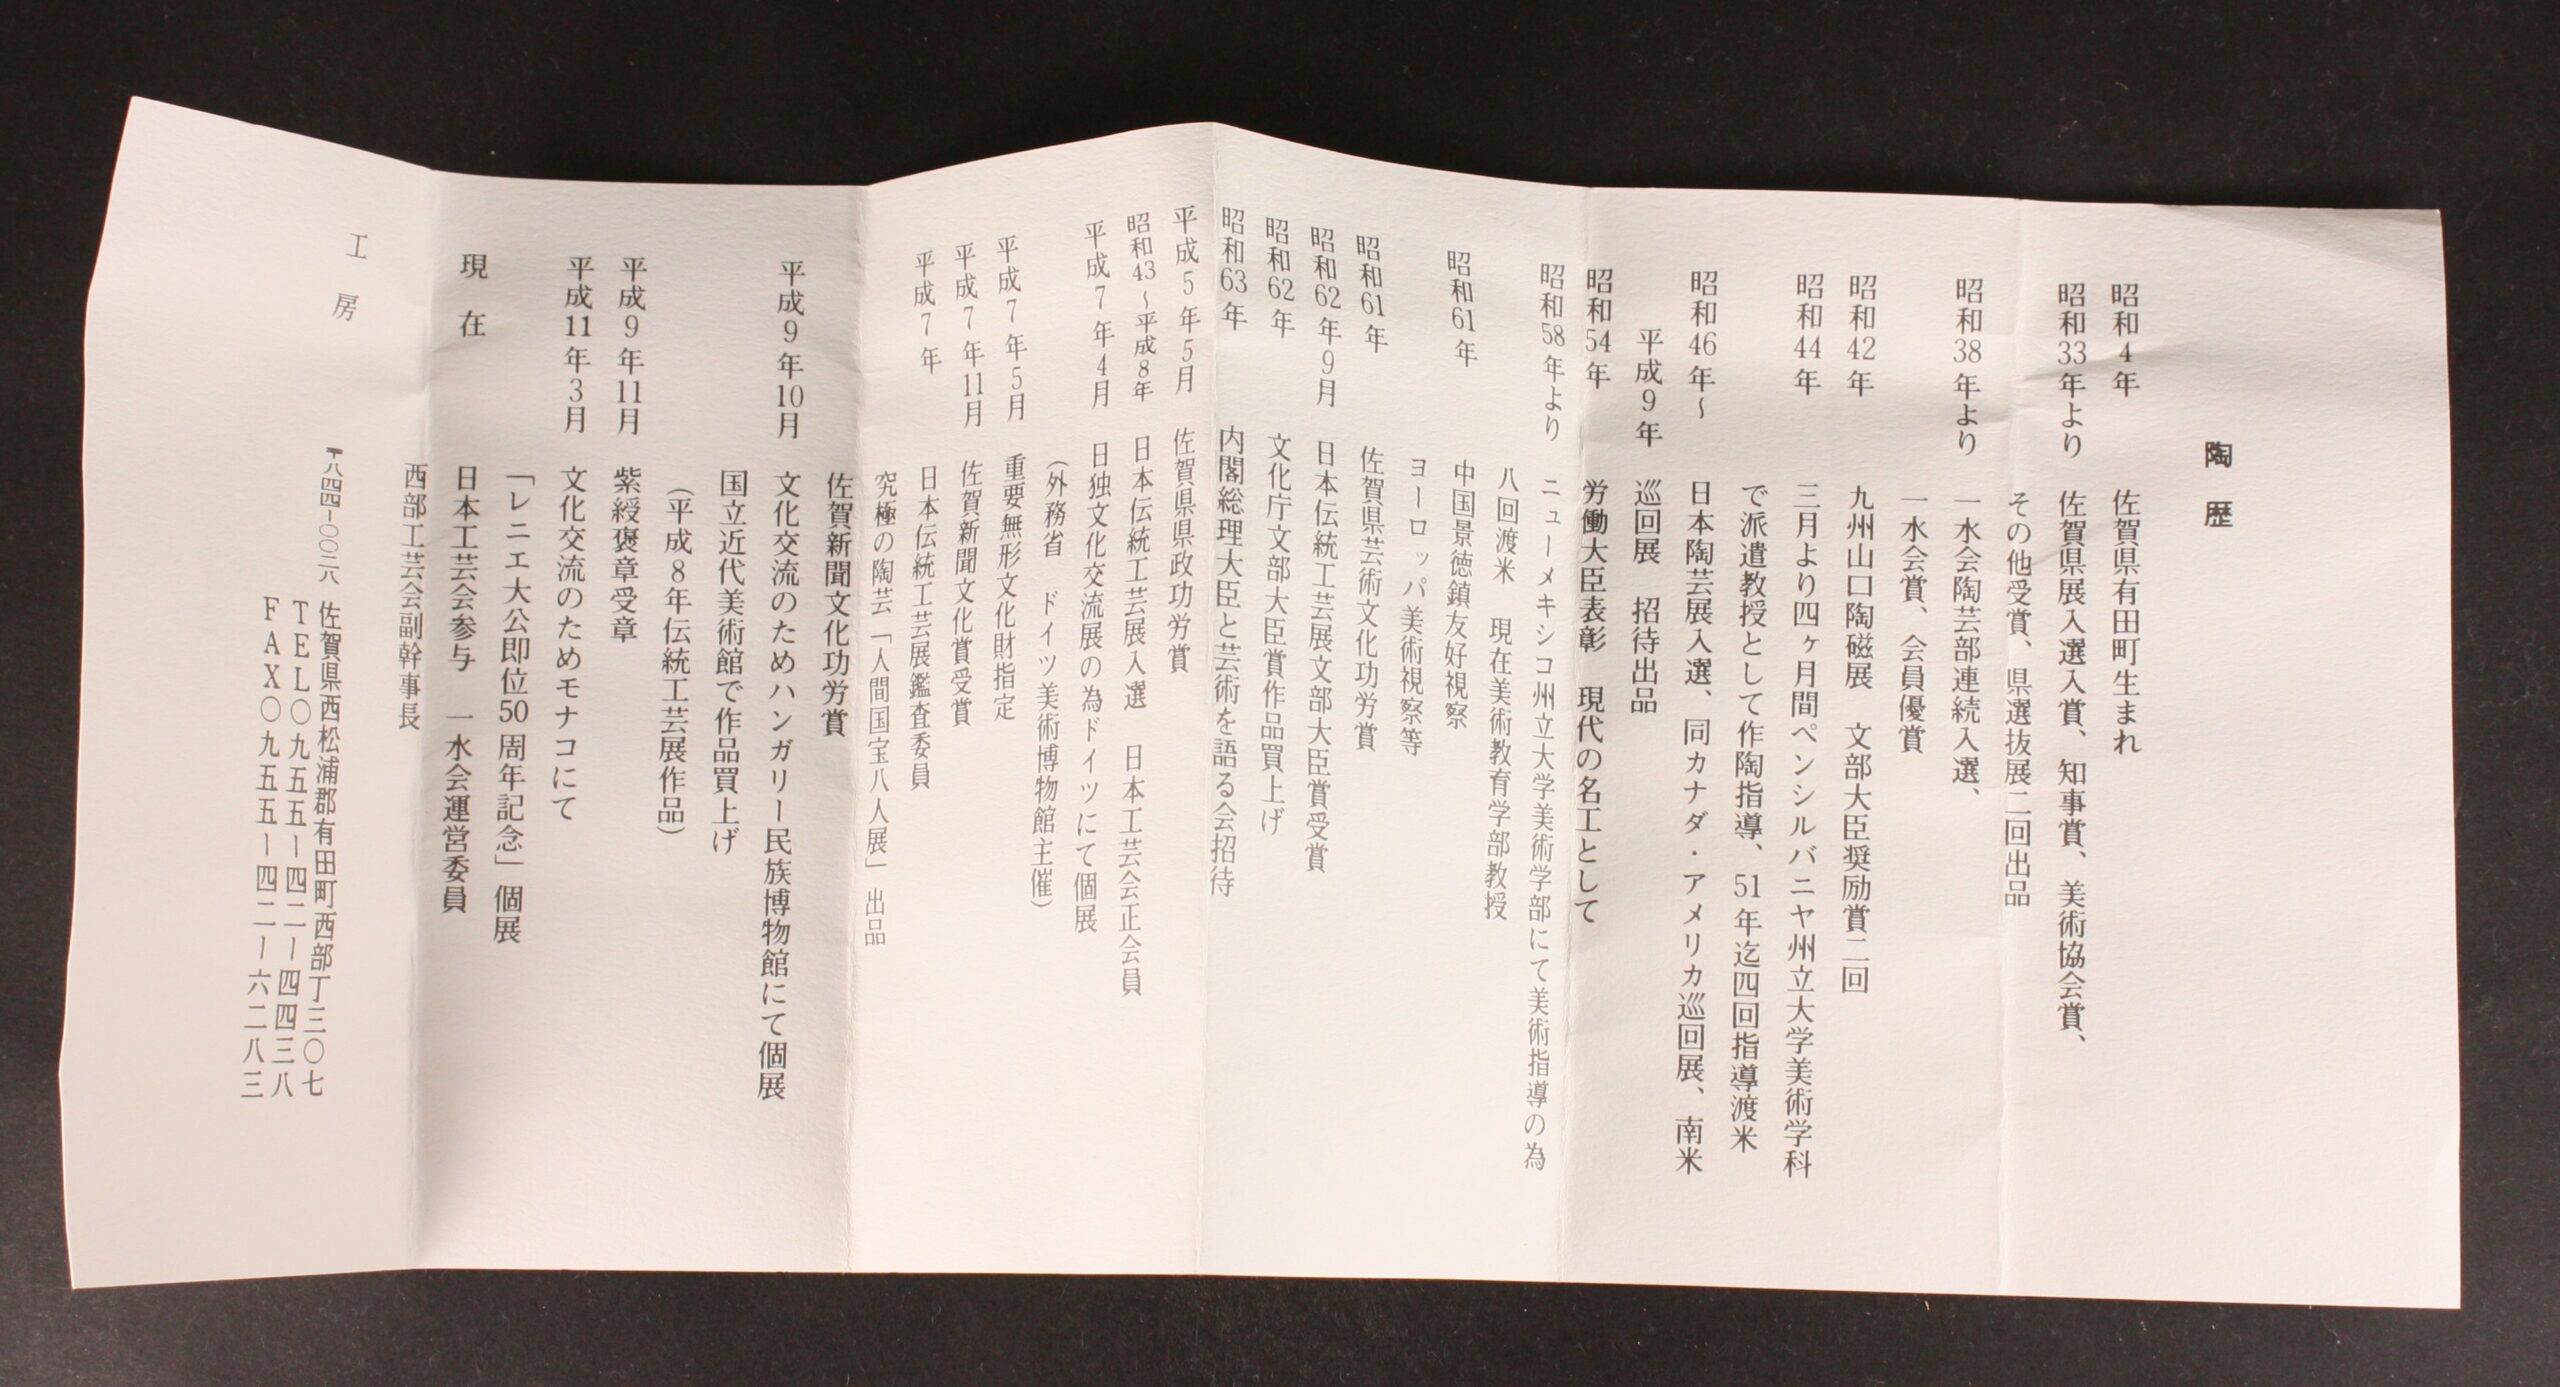 陶歴
昭和4年 佐賀県有田町生まれ
昭和33年より 佐賀県展入選入賞、知事賞、美術協会賞、
その他受賞、県選抜展二回出品
昭和38年より 一水会陶芸部連続入選、
一水会賞、会員優賞
昭和42年 九州山口陶磁展 文部大臣奨励賞二回
昭和44年 三月より四ヶ月間ペンシルバニヤ州立大学美術学科
で派遣教授として作陶指導、51年迄四回指導渡米
昭和46年〜 日本陶芸展入選、同カナダ・アメリカ巡回展、南米
平成9年 巡回展 招待出品
昭和54年 労働大臣表彰 現代の名工として
昭和58年より ニューメキシコ州立大学美術学部にて美術指導の為
八回渡米 現在美術教育学部教授
昭和61年 中国景徳鎮友好視察
ヨーロッパ美術視察等
昭和61年 佐賀県芸術文化功労賞
昭和62年9月 日本伝統工芸展文部大臣賞受賞
昭和62年 文化庁文部大臣賞作品買上げ
昭和63年 内閣総理大臣と芸術を語る会招待
平成5年5月 佐賀県県政功労賞
昭和43〜平成8年 日本伝統工芸展入選 日本工芸会正会員
平成7年4月 日独文化交流展の為ドイツにて個展
（外務省 ドイツ美術博物館主催）
平成7年5月 重要無形文化財指定
平成7年11月 佐賀新聞文化賞受賞
平成7年 日本伝統工芸展鑑査委員
究極の陶芸「人間国宝八人展」出品
佐賀新聞文化功労賞
平成9年10月 文化交流のためハンガリー民族博物館にて個展
国立近代美術館で作品買上げ
（平成8年伝統工芸展作品）
平成9年11月 紫綬褒章受章
平成11年3月 文化交流のためモナコにて
「レニエ大公即位50周年記念」個展
現在 日本工芸会参与 一水会運営委員
西部工芸会副幹事長
工房 〒八四四-〇〇二八 佐賀県西松浦郡有田町西部丁三〇七
TEL〇九五五ー四二ー四四三八
FAX〇九五五ー四二ー六二八三